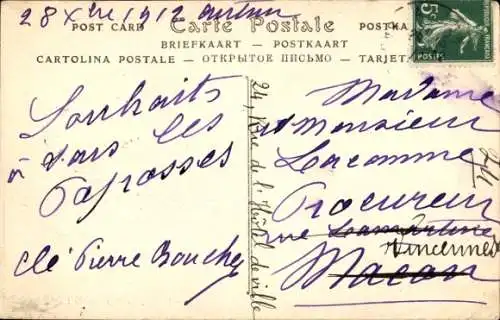 28 Xbre 1912
POST CARD Carte Postale POSTKA
BRIEFKAART — POSTKAART
CARTOLINA POSTALE — ОТКРЫТОЕ ПИСЬМО — TARJET
5c
POSTES
Souhaits
à vous les
Clé Pierre Bouchey
24, Rue de l'Hôtel de ville
Madame
Monsieur
Lacomme
Procureur
rue Lamartine
Vincennes
Macon